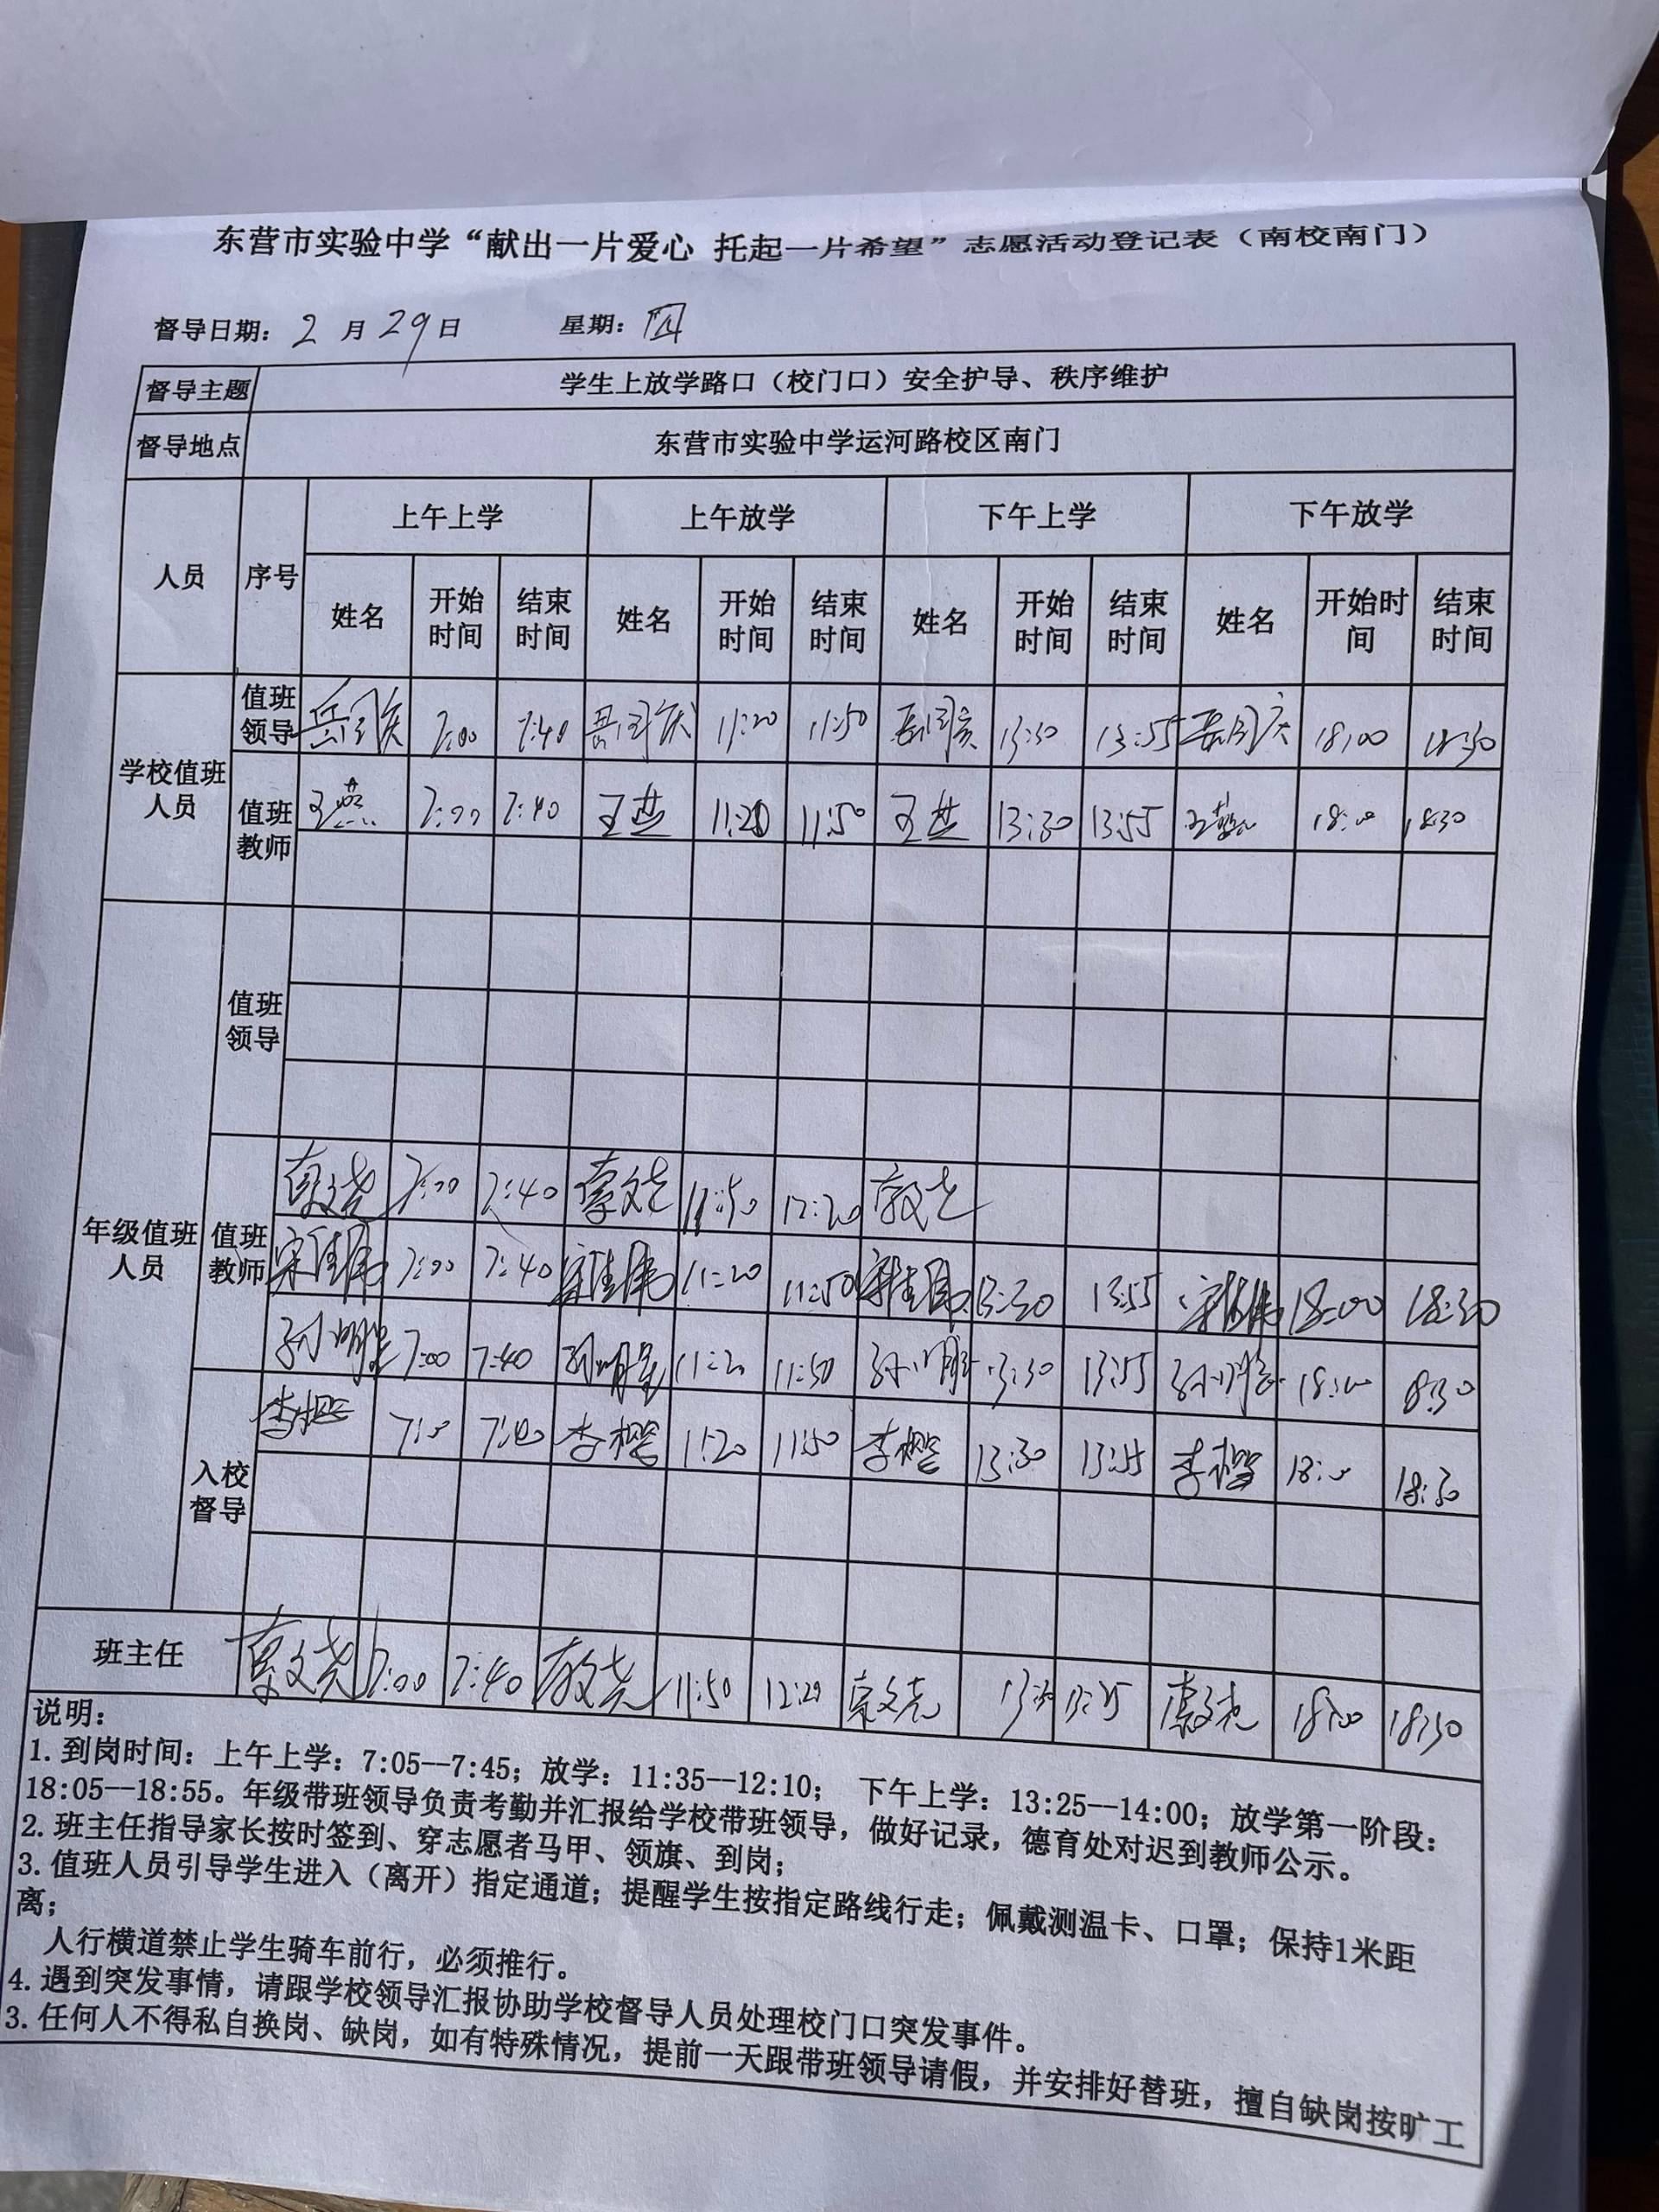 东营市实验中学“献出一片爱心 托起一片希望”志愿活动登记表（南校南门）
督导日期：2月29日 星期：四
督导主题 学生上放学路口（校门口）安全护导、秩序维护
督导地点 东营市实验中学运河路校区南门
人员 序号 上午上学 上午放学 下午上学 下午放学
姓名 开始时间 结束时间 姓名 开始时间 结束时间 姓名 开始时间 结束时间 姓名 开始时间 结束时间
学校值班人员
值班领导 岳国庆 7:00 7:40 岳国庆 11:20 11:50 岳国庆 13:30 13:55 岳国庆 18:00 18:30
值班教师 王燕 7:00 7:40 王燕 11:20 11:50 王燕 13:30 13:55 王燕 18:00 18:30
年级值班人员
值班领导
值班教师 7:00 7:40 11:50 12:20
7:00 7:40 11:20 11:50 13:30 13:55 18:00 18:30
孙明星 7:00 7:40 孙明星 11:20 11:50 13:30 13:55 18:00 8:30
入校督导 7:00 7:40 11:20 11:50 13:30 13:55 18:00 18:30
班主任 7:00 7:40 11:50 12:20 13:30 18:00 18:30
说明：
1. 到岗时间：上午上学：7:05--7:45；放学：11:35--12:10； 下午上学：13:25--14:00；放学第一阶段：
18:05--18:55。年级带班领导负责考勤并汇报给学校带班领导，做好记录，德育处对迟到教师公示。
2. 班主任指导家长按时签到、穿志愿者马甲、领旗、到岗；
3. 值班人员引导学生进入（离开）指定通道；提醒学生按指定路线行走；佩戴测温卡、口罩；保持1米距
离；
人行横道禁止学生骑车前行，必须推行。
4. 遇到突发事情，请跟学校领导汇报协助学校督导人员处理校门口突发事件。
3. 任何人不得私自换岗、缺岗，如有特殊情况，提前一天跟带班领导请假，并安排好替班，擅自缺岗按旷工